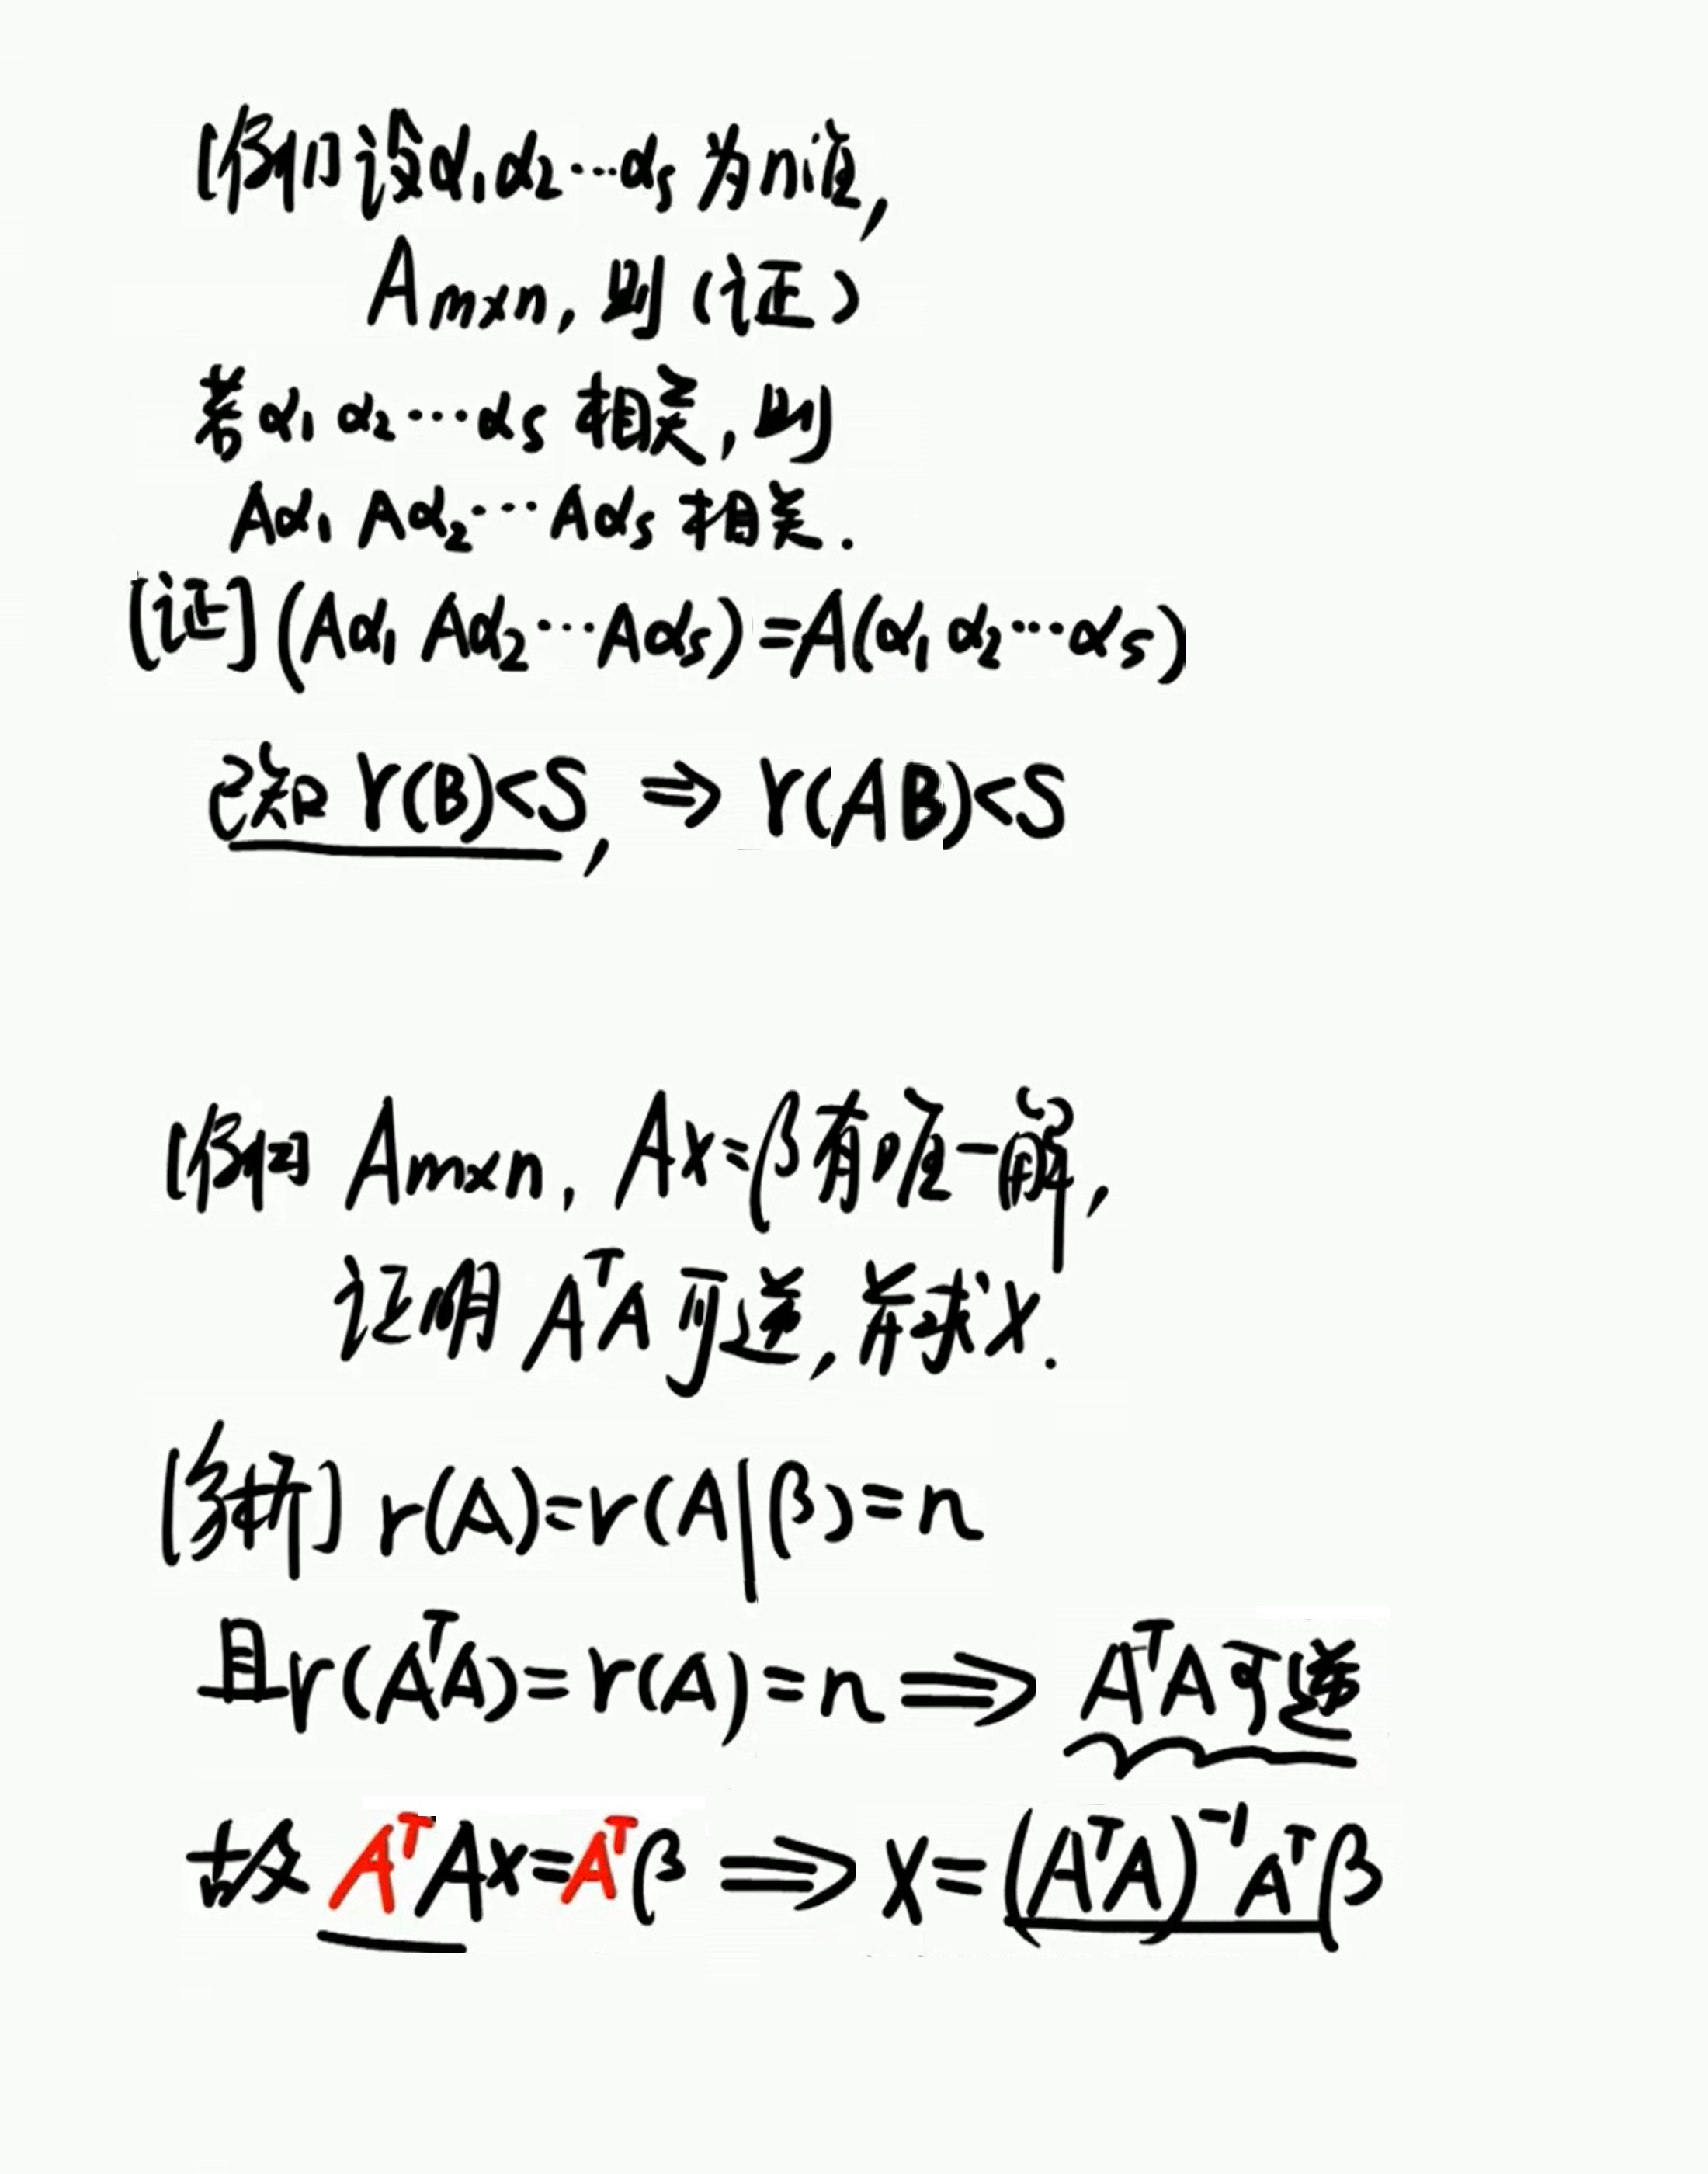 [例1]设α₁α₂⋯αₛ为n维,
Aₘₓₙ,则(证)
若α₁α₂⋯αₛ相关,则
Aα₁ Aα₂⋯Aαₛ相关.
[证](Aα₁ Aα₂⋯Aαₛ)=A(α₁α₂⋯αₛ)
已知 r(B)<S, ⇒ r(AB)<S
[例2] Aₘₓₙ, Ax=β有唯一解,
证明 AᵀA可逆,并求x.
[解析] r(A)=r(A|β)=n
且r(AᵀA)=r(A)=n⟹AᵀA可逆
故 AᵀAx=Aᵀβ⟹x=(AᵀA)⁻¹Aᵀβ